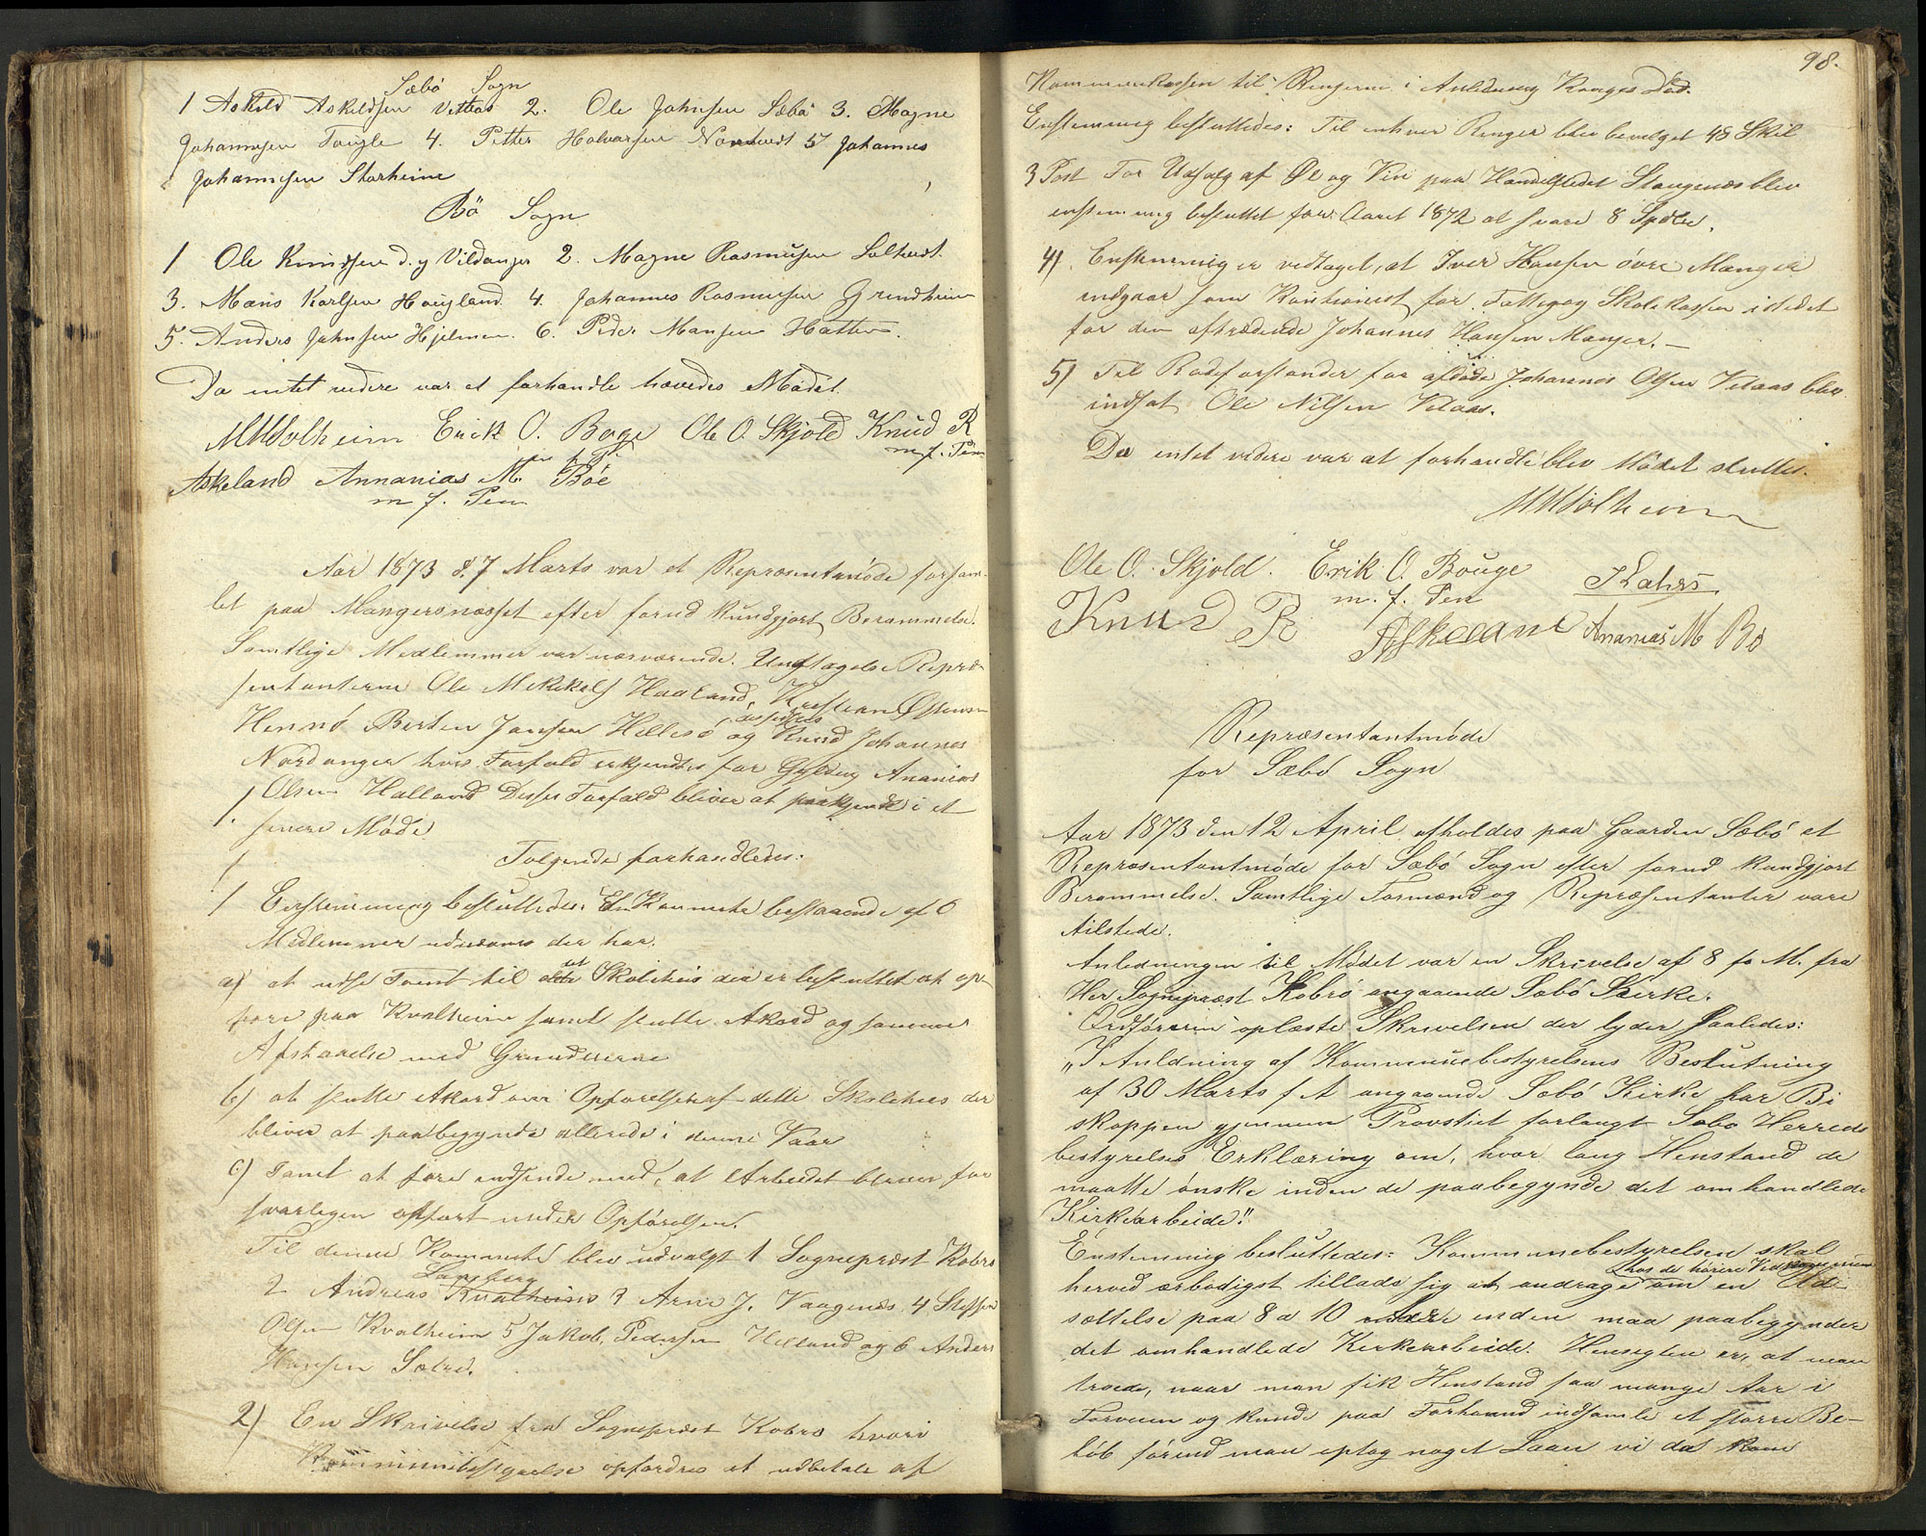 Sæbö Sogn
1 Askild Askildsen Vettaas 2. Ole Johnsen Sæbö 3. Magne
Johannesen Tougle 4. Petter Halvorsen Nordvedt 5 Johannes
Johannesen Storheim
Bö Sogn
1 Ole Knudsen d.y Vildanger 2. Magne Rasmusen Soltvedt.
3. Mons Karlsen Hougland. 4. Johannes Rasmusen Grindheim
5. Anders Johnsen Hjelmen. 6. Peder Monsen Hatten.
Da intet videre var at forhandle hævedes Mödet.
MMSolheim Erik O. Boge Ole O. Skjold Knud R
m f. Pen m. f. Pen
Askeland Annanias M. Böe
m f. Pen
Aar 1873 d. 7 Marts var et Repræsentmöde forsam-
let paa Mangersnæsset efter forud kundgjort Berammelse.
Samtlige Medlemmer var nærværende. Undtagelse Repræ-
sentanterne Ole Mikkels Haaland, Kristian Östensen
Hennö Berten Jansen Hellesö og Knud Johannes
Nordanger hvis Forfald erkjendtes for Gyldig Ananias
Olsen Halland Disses Forfald bliver at paakjende i et
senere Möde
Følgende forhandledes:
1 Eenstemmig besluttedes: En Kommite bestaaende af 6
Medlemmer udnævnes der har.
a) at udse Tomt til det Skolehuus der er besluttet at op-
före paa Kvalheim samt slutte Akord og
Afstaaelse med Grundeierne
b) at slutte Akord over Opförelsen af dette Skolehus der
bliver at paabegynde allerede i denne Vaar
c) Samt at före indseende med, at Arbeidet bliver for
svarligen opfört under Opförelsen.
Til denne Kommite blev udvalgt 1 Sognepræst Kobro
Landberg
2 Andreas Kvalheim 3 Arne J. Vaagenæs 4 Steffen
Olsen Kvalheim 5 Jakob Pedersen Helland og 6 Anders
Hansen Sætre.
2) En Skrivelse fra Sognepræst Kobro hvori
Kommunebestyrelse opfordres at udbetale af
98.
Kommunekassen til Ringerne i Anledning Konges Död.
Enstemmig besluttedes: Til enhver Ringer blev bevilget 48 Skil
3 Post For Udsalg af Øl og Vin paa Handelstedet Skougenæs blev
enstemmig besluttet for Aaret 1872 at svare 8 Spdlr.
4). Enstemmig er vedtaget, at Iver Hansen övre Manger
indgaar som Kautionist for Fattig og Skolekassen istedet
for den aftrædende Johannes Hansen Manger. —
5) Til Rodeforstander for afdöde Johannes Olsen Vetaas blev
indsat Ole Nilsen Vetaas.
Da intet videre var at forhandle blev Mödet sluttet.
MMSolheim
Ole O. Skjold. Erik O. Bouge Kahrs
m. f. Pen
Knud R Askeland Ananias M Bö
Repræsentantmöde
for Sæbö Sogn
Aar 1873 den 12 April afholdes paa Gaarden Sæbö et
Repræsentantmöde for Sæbö Sogn efter forud kundgjort
Berammelse. Samtlige Formænd og Repræsentanter vare
tilstede.
Anledningen til Mödet var en Skrivelse af 8 f. M. fra
Her Sognepræst Kobrö angaaende Sæbö Kirke.
Ordföreren oplæste Skrivelsen der lyder saaledes:
„I Anledning af Kommunebestyrelsens Beslutning
af 30 Marts f A angaaende Sæbö Kirke har Bi
skoppen gjennem Provstiet forlangt Sæbo Herreds
bestyrelses Erklæring om, hvor lang Henstand de
maatte önske inden de paabegynde det omhandlede
Kirkearbeide."
Enstemmig besluttedes: Kommunebestyrelsen skal
hos de höiere Vedkommende
herved ærbödigst tillade sig at andrage om en Ud
sættelse paa 8 a 10 Aar inden man paabegynder
det omhandlede Kirkearbeide. Hensigten er, at man
troede, naar man fik Henstand saa mange Aar i
Forveien og kunde paa Forhaand indsamle et större Be-
löb förend man optog noget Laan vi da kom